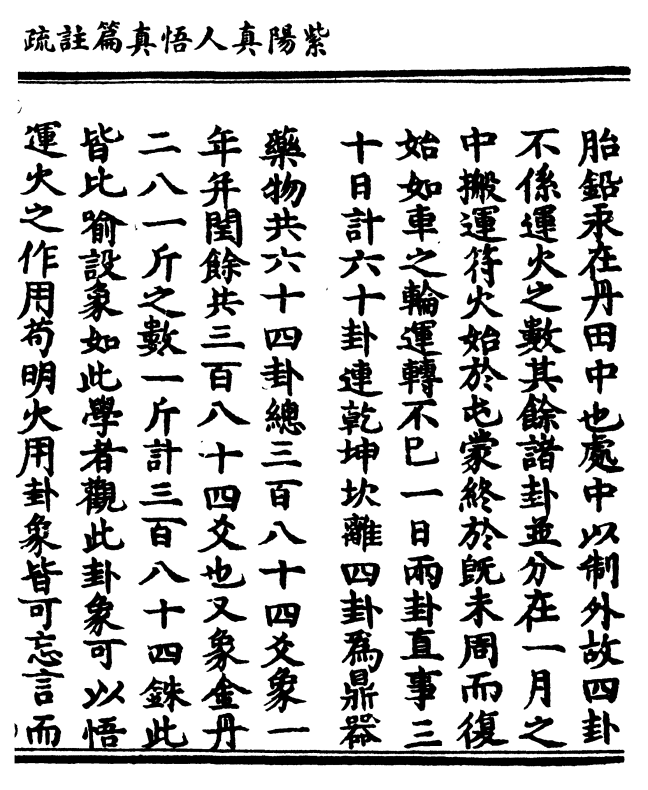 紫陽真人悟真篇註疏
胎鉛汞在丹田中也處中以制外故四卦
不係運火之數其餘諸卦並分在一月之
中搬運符火始於屯蒙終於既未周而復
始如車之輪運轉不已一日兩卦直事三
十日計六十卦連乾坤坎離四卦為鼎器
藥物共六十四卦總三百八十四爻象一
年并閏餘共三百八十四爻也又象金丹
二八一斤之數一斤計三百八十四銖此
皆比喻設象如此學者觀此卦象可以悟
運火之作用苟明火用卦象皆可忘言而